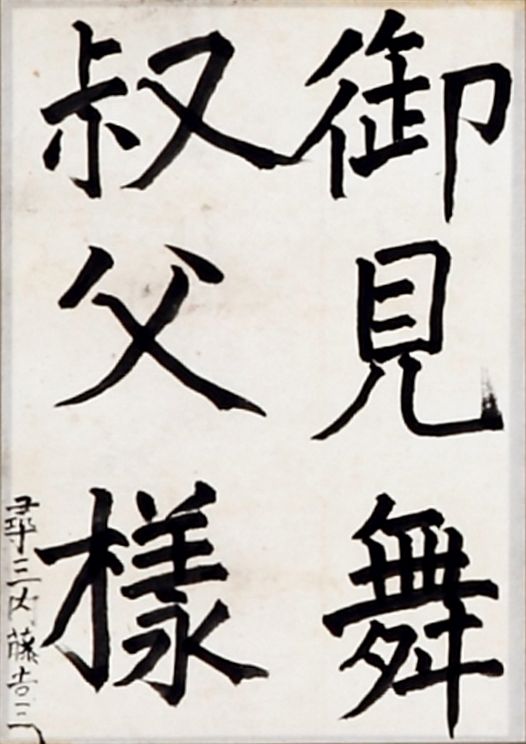 御見舞
叔父樣
尋三内藤吉三